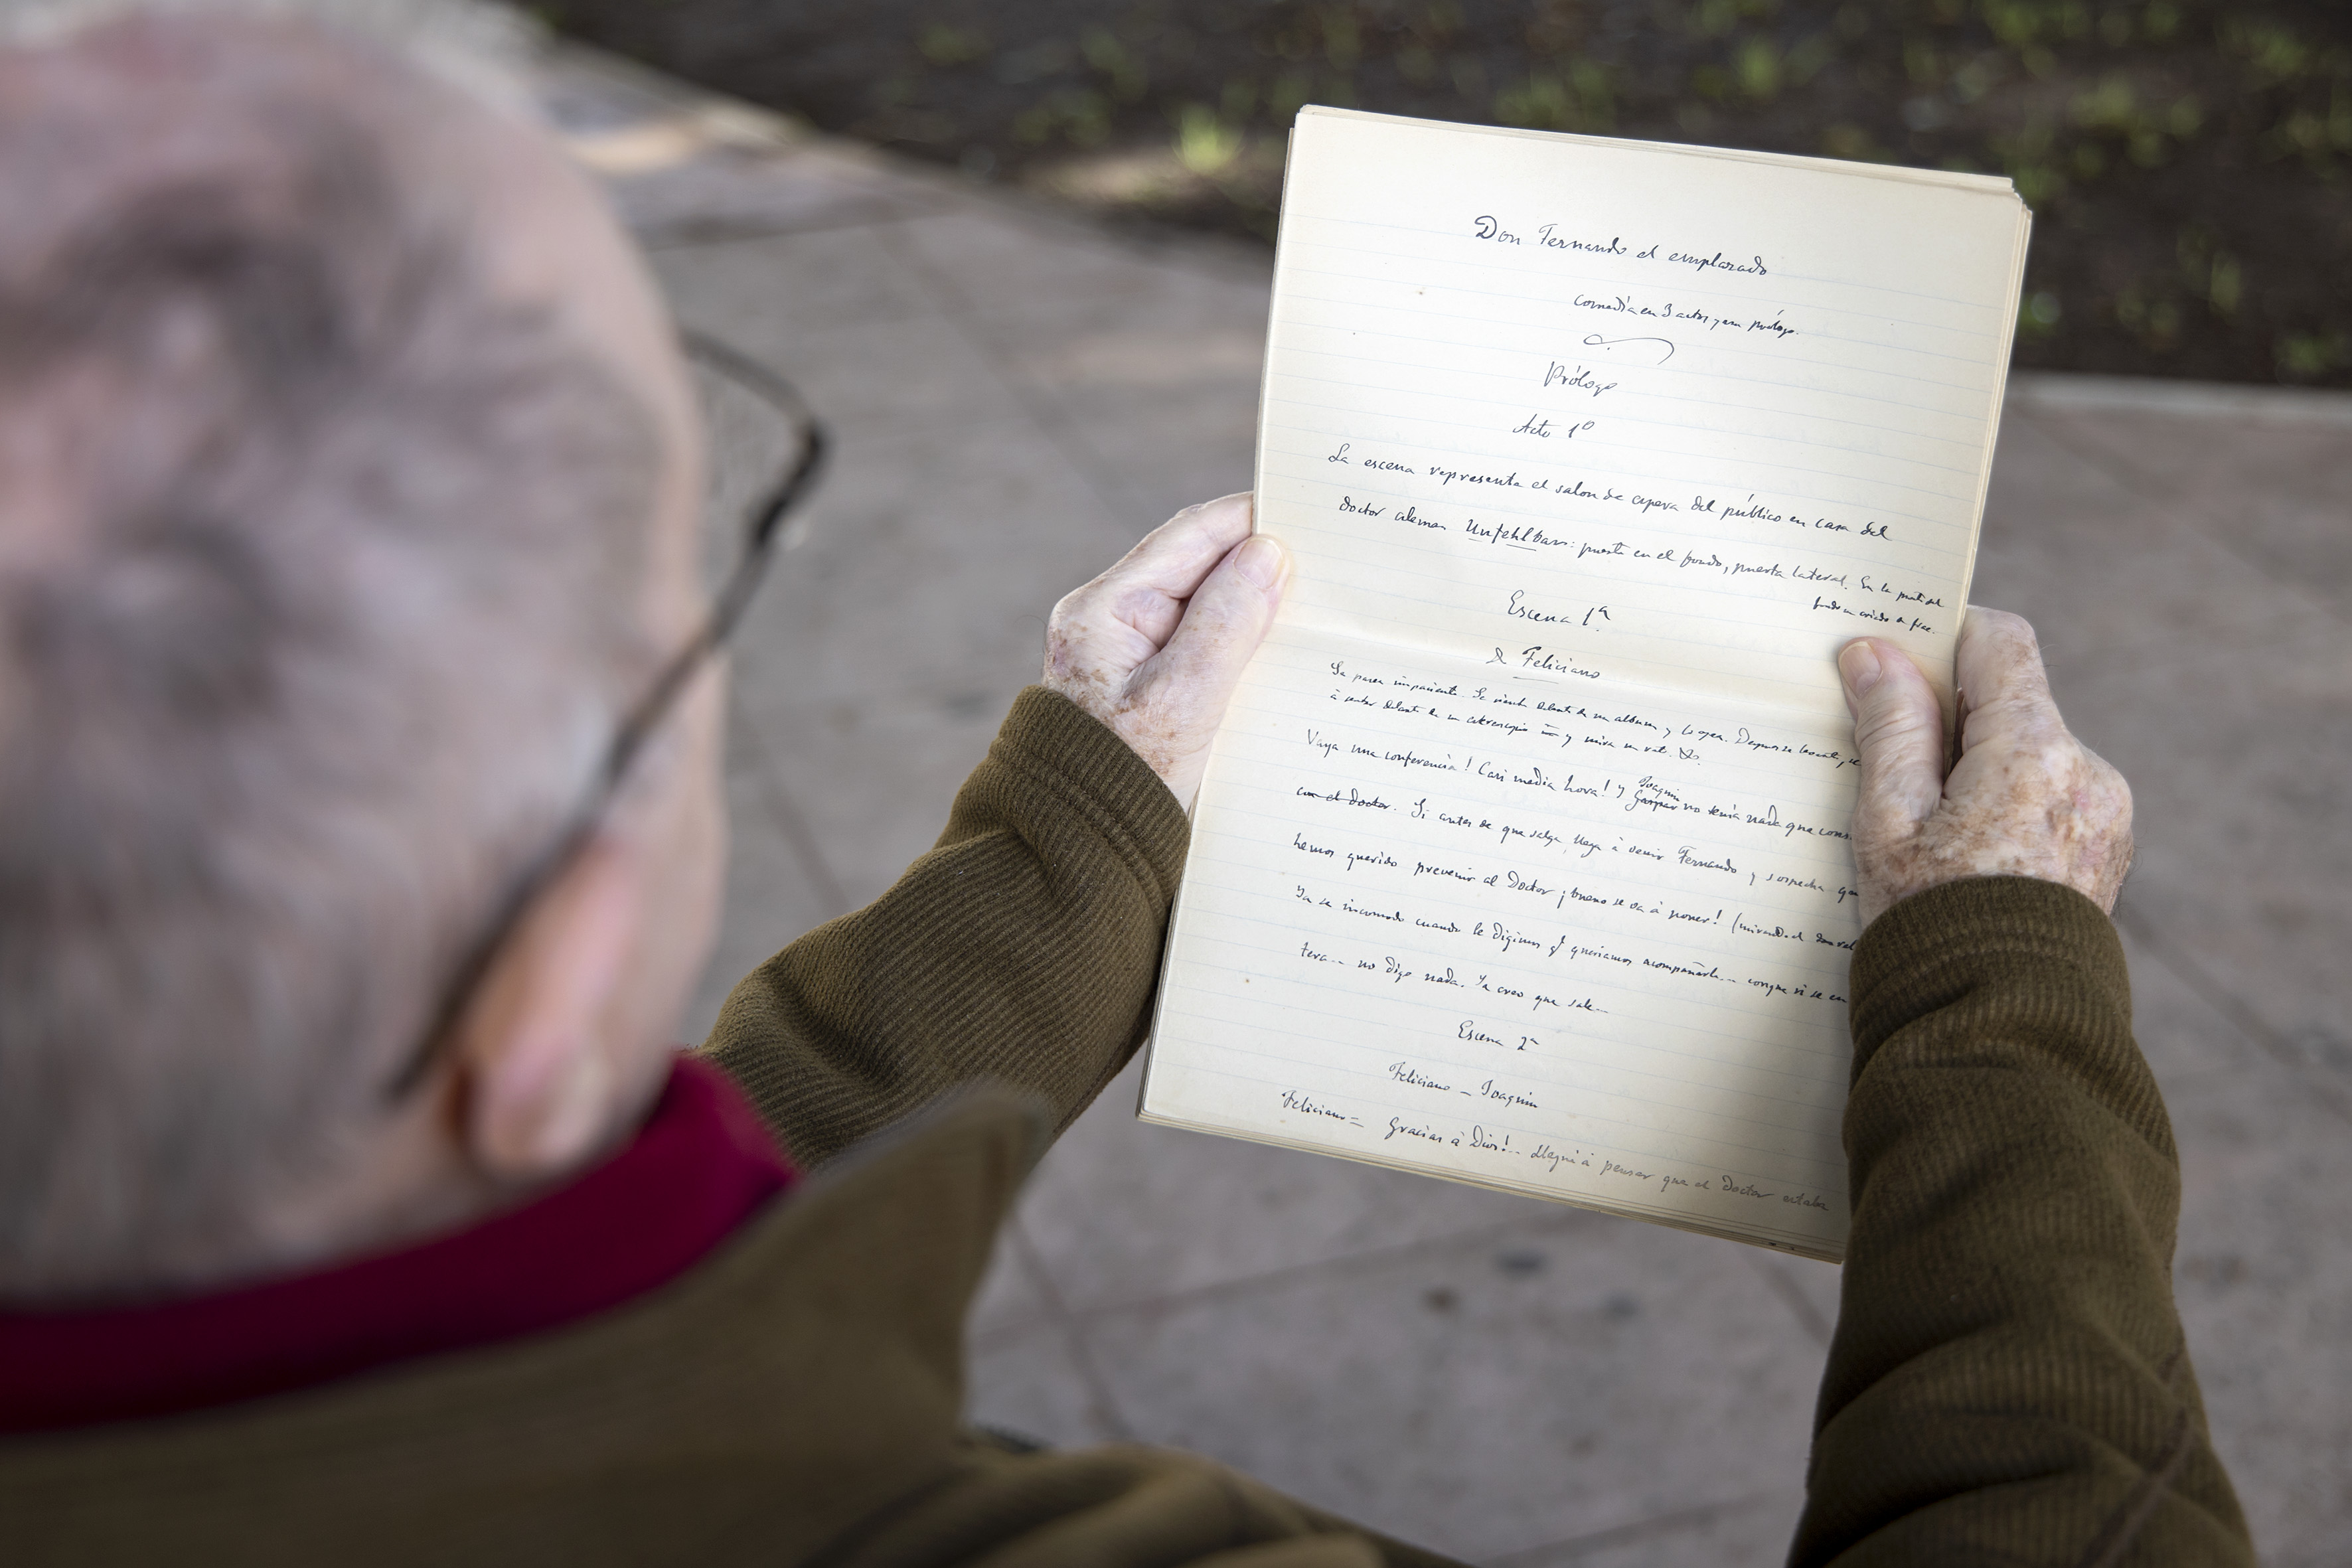 Don Fernando el emplazado
comedia en 3 actos y un prólogo.
Prólogo
Acto 1º
La escena representa el salon de espera del público en casa del
doctor aleman Unfehlbar: puerta en el fondo, puerta lateral. En la puerta del
fondo un criado de frac.
Escena 1ª.
Feliciano
Se pasea impaciente. Se sienta delante de un album y lo ojea. Despues se levanta, se
á sentar delante de un estereoscopio y mira un rato.
Vaya una conferencia! Casi media hora! y Joaquin
Gaspar no tenia nada que cons
con el doctor. Si antes de que salga, llega á venir Fernando y sospecha que
hemos querido prevenir al Doctor ¡bueno se va á poner! (mirando el
Ya se incomodó cuando le digimos qe queriamos acompañarle... conque si se en
tera... no digo nada. Ya creo que sale...
Escena 2ª
Feliciano – Joaquin
Feliciano = Gracias á Dios!.. Llegué á pensar que el Doctor estaba